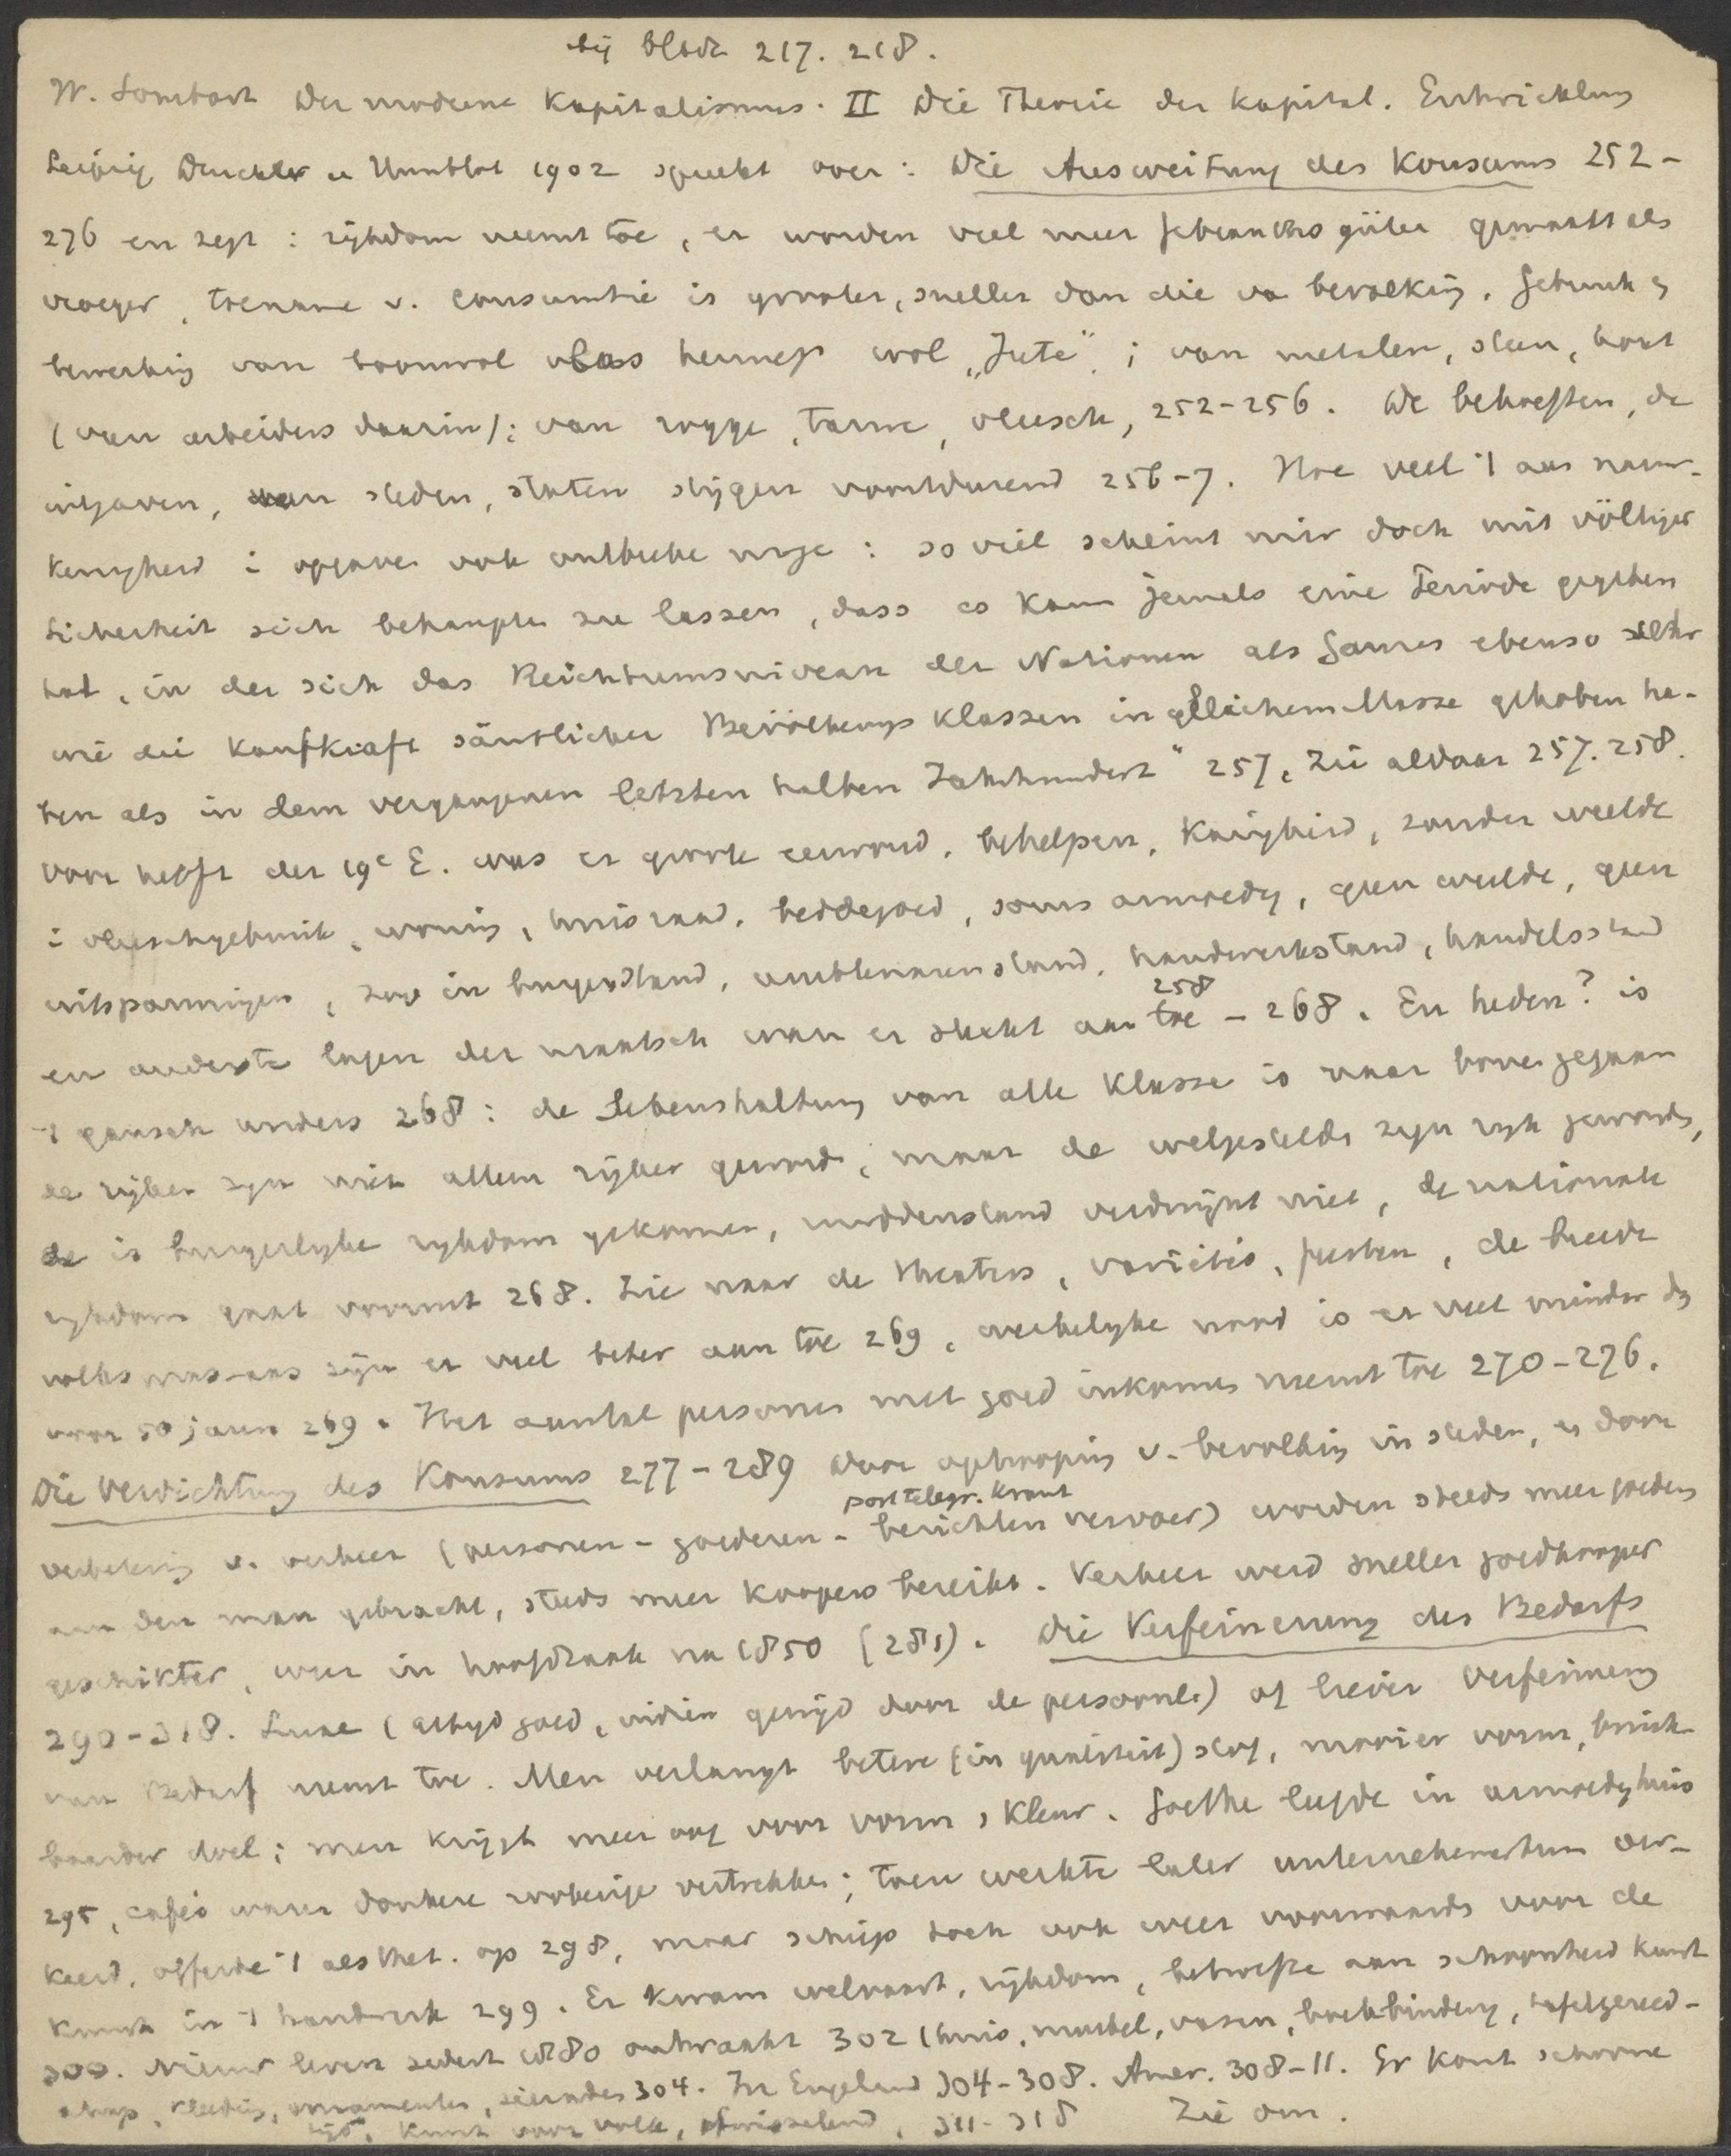 bij bladz 217. 218.
W. Sombart Der moderne Kapitalismus. II Die Theorie der kapital. Entwicklung
Leipzig Duncker u Humblot 1902 spreekt over: Die Ausweitung des Konsums 252-
276 en zegt: rijkdom neemt toe, er worden veel meer Gebrauchsgüter gemaakt als
vroeger, toename v. consumtie is grooter, sneller dan die va bevolking. Gebruik en
bewerking van boomwol vlas hennep wol „Jute"; van metalen, steen, hout
(van arbeiders daarin); van rogge, tarwe, vleesch, 252-256. De behoeften, de
uitgaven, van steden, staten stijgen voortdurend 256-7. Hoe veel 't aan nauw-
keurigheid i opgaven ook ontbreke moge: so viel scheint mir doch mit völliger
Sicherheit sich behaupten zu lassen, dass es kaum jemals eine Periode gegeben
hat, in der sich das Reichtumsniveau der Nationen als Ganzes ebenso sehr
wie die Kaufkraft sämtlicher Bevölkerungsklassen in gleichem Masse gehoben ha-
ben als in dem vergangenen letzten halben Jahrhundert" 257, Zie aldaar 257. 258.
Voor helft der 19e E. was er groote eenvoud, behelpen, karigheid, zonder weelde
i vleeschgebruik, woning, huisraad, beddegoed, soms armoedig, geen weelde, geen
uitspanningen, zoo in burgerstand, ambtenarenstand, handwerkstand, handelsstand
en onderste lagen der maatsch waren er slecht aan toe 258 - 268. En heden? is
't gansch anders 268: de Lebenshaltung van alle Klasse is naar boven gegaan
de rijken zijn niet alleen rijker geword, maar de welgestelde zijn rijk geworden,
er is burgerlijke rijkdom gekomen, middenstand verdwijnt niet, de nationale
rijkdom gaat vooruit 268. Zie naar de theaters, variétés, feesten, de breede
volksmassaas zijn er veel beter aan toe 269, werkelijke nood is er veel minder dan
voor 50 jaren 269. Het aantal personen met goed inkomen neemt toe 270-276.
Die Verdichtung des Konsums 277-289 door ophooping v. bevolking in steden, en door
verbetering v. verkeer (personen- goederen- berichten vervoer) post telegr. krant worden steeds meer goederen
aan den man gebracht, steeds meer koopers bereikt. Verkeer werd sneller goedkooper
geschikter, weer in hoofdzaak na 1850 (281). Die Verfeinerung des Bedarfs
290-318. Luxe (altijd goed, indien gewijd door de persoonl.) of liever Verfeinerung
van Bedarf neemt toe. Men verlangt betere (in qualiteit) stof, mooier vorm, bruik-
baarder doel; men krijgt meer oog voor vorm, kleur. Goethe leefde in armoedig huis
295, cafés waren donkere rookerige vertrekken; toen werkte later unternehmertum ver-
keerd, offerde 't aesthet. op 298, maar schiep toch ook weer voorwaarde voor de
kunst in 't handwerk 299. Er kwam welvaart, rijkdom, behoefte aan schoonheid kunst
300. Nieuw leven sedert 1880 ontwaakt 302 (huis, meubel, vasen, boekbinderij, tafelgereed-
schap, kleeding, ornamenten, sieraden 304. In Engeland 304-308. Amer. 308-11. Er komt schoone
tijd, kunst voor volk, afwisselend, 311-318 Zie om.